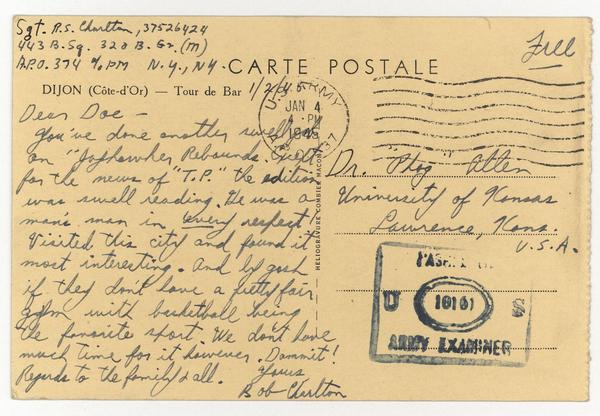 Sgt. R.S. Charlton, 37526424
443 B. Sq. 320 B. Gr. (M)
A.P.O. 374 % PM N.Y., N.Y.
Free
CARTE POSTALE
DIJON (Côte-d'Or) — Tour de Bar
1/2/45
U.S. ARMY
JAN 4
PM
1945
Dear Doc —
You've done another swell job
on "Jayhawker Rebounds." Except
for the news of "T.P." the edition
was swell reading. He was a
man's man in every respect!
Visited this city and found it
most interesting. And by gosh
if they don't have a pretty fair
gym with basketball being
the favorite sport. We don't have
much time for it however. Dammit!
Regards to the family & all.
Yours
Bob Charlton
HELIOGRAVURE COMBIER MACON
Dr. "Phog" Allen
University of Kansas
Lawrence, Kans.
U.S.A.
PASSED BY
U
10161
SA
ARMY EXAMINER